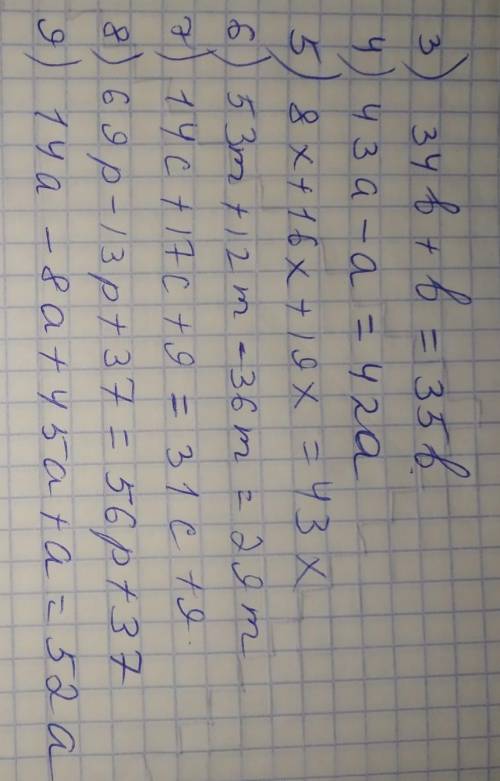 3) 34b + b = 35b.
4) 43a - a = 42a
5) 8x + 16x + 19x = 43x
6) 53m + 12m - 36m = 29m
7) 14c + 17c + 9 = 31c + 9
8) 69p - 13p + 37 = 56p + 37
9) 14a - 8a + 45a + a = 52a